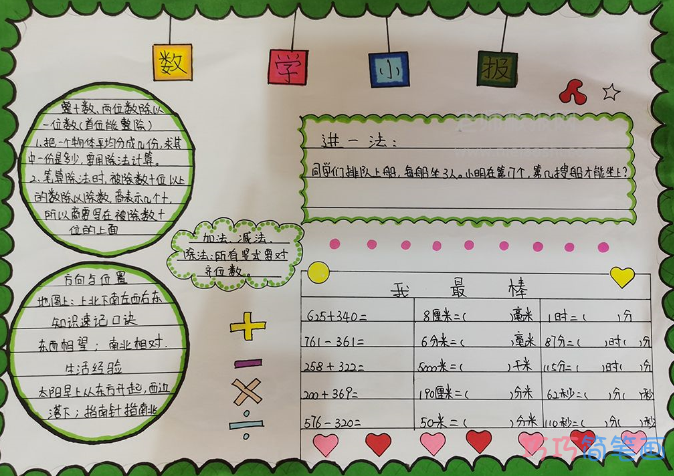 数 学 小 报
整十数、两位数除以
一位数(首位能整除)
1.把一个物体平均分成几份,求其
中一份是多少,要用除法计算。
2.笔算除法时,被除数十位以上
的数除以除数,商表示几个十,
所以商要写在被除数十
位的上面
方向与位置
地图上:上北下南左西右东
知识速记口诀
东西相望;南北相对.
生活经验
太阳早上从东方升起,西边
落下;指南针指南北
加法、减法、
除法:所有竖式要对
齐位数。
进一法:
同学们排队上船,每船坐3人。小明在第17个,第几搜船才能坐上?
我 最 棒
625+340= 8厘米=( )毫米 1时=( )分
761-361= 6分米=( )毫米 87分=( )时( )分
258+322= 5000米=( )千米 115分=( )时( )分
200+369= 190厘米=( )分米 62秒=( )分( )秒
576-320= 50米=( )分米 110秒=( )分( )秒
巧巧简笔画